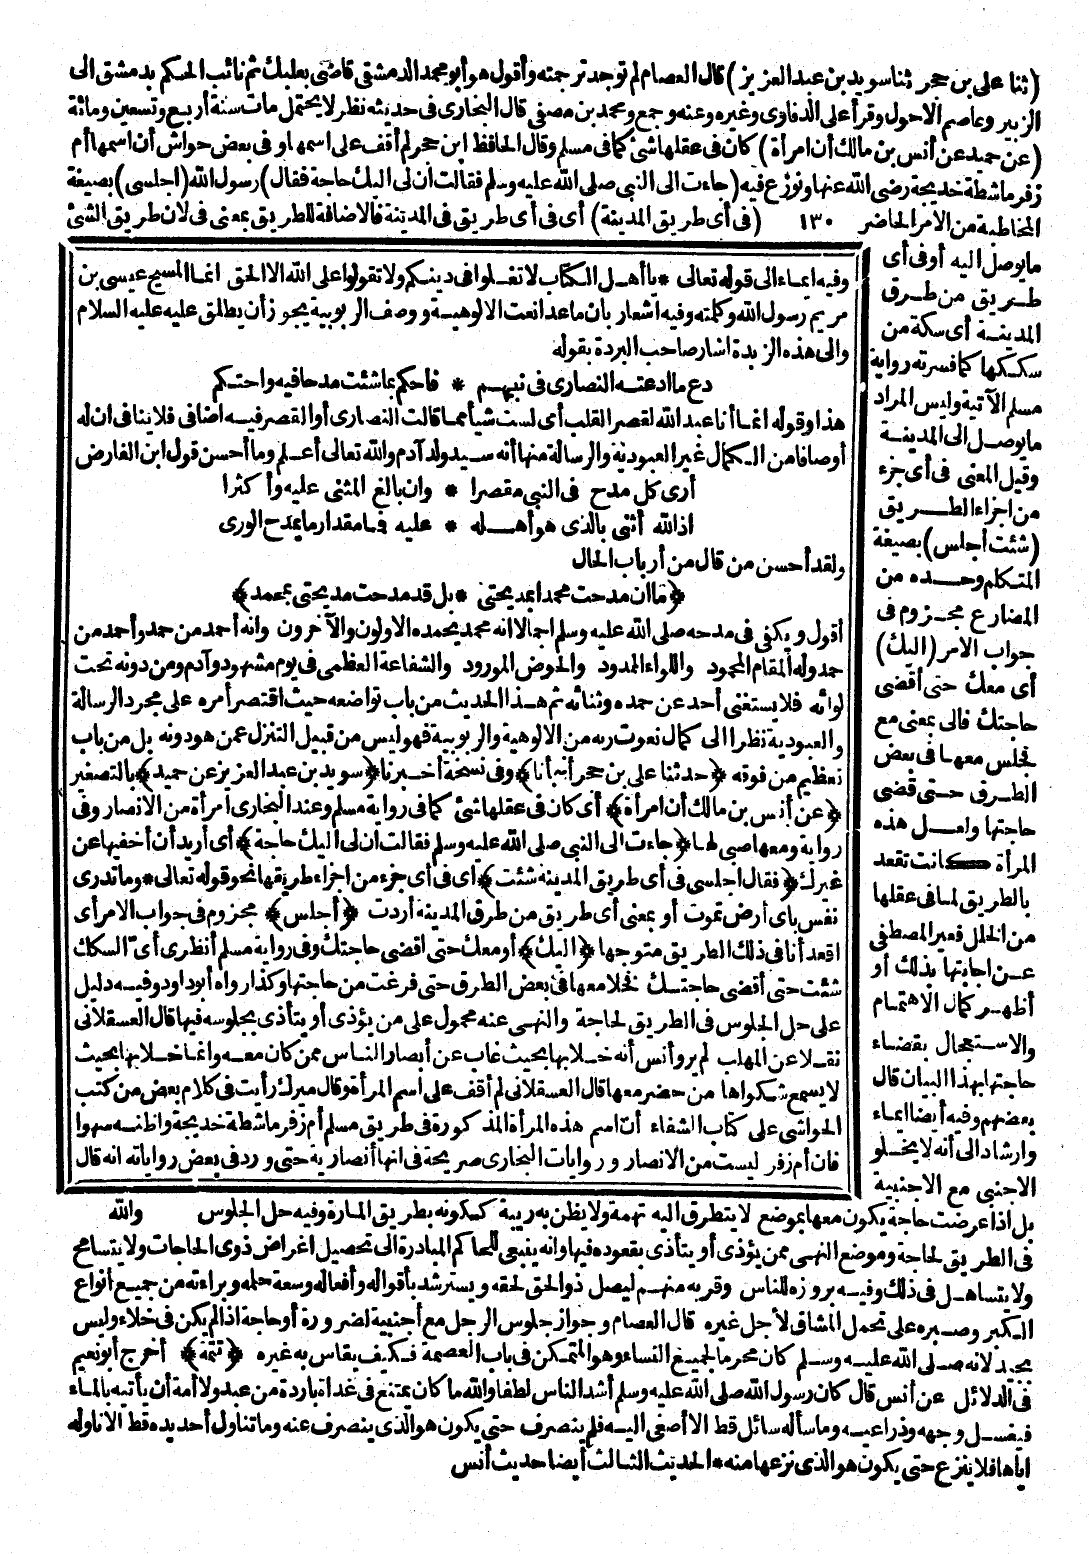 (ثنا على بن حجر ثنا سويد بن عبد العزيز) قال العصام لم توجد ترجمته وأقول هو أبو محمد الدمشقى قاضى بعلبك ثم نائب الحكم بدمشق الى
الزبير وعاصم الاحول وقرأ على الذمارى وغيره وعنه وجمع ومحمد بن مصفى قال البخارى فى حديثه نظر لا يحتمل مات سنة أربع وتسعين ومائة
(عن حميد عن أنس بن مالك أن امرأة) كان فى عقلها شئ كما فى مسلم وقال الحافظ ابن حجر لم أقف على اسمها و فى بعض حواش أن اسمها أم
زفر ماشطة خديجة رضى الله عنها ونوزع فيه (جاءت الى النبى صلى الله عليه وسلم فقالت أن لى اليك حاجة فقال) رسول الله (اجلسى) بصيغة
المخاطبة من الامر الحاضر ١٣٠ (فى أى طريق المدينة) أى فى أى طريق فى المدينة فالاضافة للطريق بمعنى فى لان طريق الشئ
ما يوصل اليه أو فى أى
طريق من طرق
المدينة أى سكة من
سككها كما فسرته رواية
مسلم الآتية وليس المراد
ما يوصل الى المدينة
وقيل المعنى فى أى جزء
من اجزاء الطريق
(شئت أجلس) بصيغة
المتكلم وحده من
المضارع مجزوم فى
جواب الامر (اليك)
أى معك حتى أقضى
حاجتك فالى بمعنى مع
نجلس معها فى بعض
الطرق حتى قضى
حاجتها ولعل هذه
المرأة كانت تقعد
بالطريق لما فى عقلها
من الخلل فعبر المصطفى
عن اجابتها بذلك أو
أظهر كمال الاهتمام
والاستعجال بقضاء
حاجتها بهذا البيان قال
بعضهم وفيه أيضا ايماء
وارشاد الى أنه لا يخلو
الاجنبى مع الاجنبية
وفيه ايماء الى قوله تعالى * يا أهل الكتاب لا تغلوا فى دينكم ولا تقولوا على الله الا الحق انما المسيح عيسى بن
مريم رسول الله وكلمته وفيه اشعار بان ما عدا نعت الالوهية ووصف الربوبية يجوز أن يطلق عليه عليه السلام
والى هذه الزبدة اشار صاحب البردة بقوله
دع ما ادعته النصارى فى نبيهم * فاحكم بما شئت مدحا فيه واحتكم
هذا وقوله انما أنا عبد الله لقصر القلب أى لست شيأ مما قالت النصارى أو القصر فيه اضافى فلا ينافى ان له
أوصافا من الكمال غير العبودية والرسالة منها أنه سيد ولد آدم والله تعالى أعلم وما أحسن قول ابن الفارض
أرى كل مدح فى النبى مقصرا * وان بالغ المثنى عليه وأكثرا
اذ الله أثنى بالذى هو أهله * عليه فما مقدار ما يمدح الورى
ولقد أحسن من قال من أرباب الحال
﴿ما ان مدحت محمدا بمديحتى * بل قد مدحت مديحتى بمحمد﴾
أقول ويكفى فى مدحه صلى الله عليه وسلم اجمالا انه محمد يحمده الاولون والآخرون وانه أحمد من حمد وأحمد من
حمد وله المقام المحمود واللواء الممدود والحوض المورود والشفاعة العظمى فى يوم مشهود وآدم ومن دونه تحت
لوائه فلا يستغنى أحد عن حمده وثنائه ثم هذا الحديث من باب تواضعه حيث اقتصر أمره على مجرد الرسالة
والعبودية نظرا الى كمال نعوت ربه من الالوهية والربوبية فهو ليس من قبيل التنزل عمن هو دونه بل من باب
تعظيم من فوقه ﴿حدثنا على بن حجر أنبأنا﴾ وفى نسخة أخبرنا ﴿سويد بن عبد العزيز عن حميد﴾ بالتصغير
﴿عن أنس بن مالك أن امرأة﴾ أى كان فى عقلها شئ كما فى رواية مسلم وعند البخارى امرأة من الانصار وفى
رواية ومعها صبى لها ﴿جاءت الى النبى صلى الله عليه وسلم فقالت أن لى اليك حاجة﴾ أى أريد أن أخفيها عن
غيرك ﴿فقال اجلسى فى أى طريق المدينة شئت﴾ أى فى أى جزء من اجزاء طريقها نحو قوله تعالى * وما تدرى
نفس باى أرض تموت أو بمعنى أى طريق من طرق المدينة أردت ﴿أجلس﴾ مجزوم فى جواب الامر أى
اقعد أنا فى ذلك الطريق متوجها ﴿اليك﴾ أو معك حتى اقضى حاجتك وفى رواية مسلم أنظرى أىّ السكك
شئت حتى أقضى حاجتك نخلا معها فى بعض الطرق حتى فرغت من حاجتها وكذا رواه أبو داود وفيه دليل
على حل الجلوس فى الطريق لحاجة والنهى عنه محمول على من يؤذى أو يتأذى بجلوسه فيها قال العسقلانى
نقلا عن المهلب لم يرو أنس أنه خلا بها بحيث غاب عن أبصار الناس ممن كان معه وانما خلا بها بحيث
لا يسمع شكواها من حضر معها قال العسقلانى لم أقف على اسم المرأة وقال ميرك رأيت فى كلام بعض من كتب
الحواشى على كتاب الشفاء أن اسم هذه المرأة المذكورة فى طريق مسلم أم زفر ماشطة خديجة واظنه سهوا
فان أم زفر ليست من الانصار وروايات البخارى صريحة فى انها أنصارية حتى ورد فى بعض رواياته انه قال
بل اذا عرضت حاجة يكون معها بموضع لا يتطرق اليه تهمة ولا يظن به ريبة ككونه بطريق المارة وفيه حل الجلوس والله
فى الطريق لحاجة وموضع النهى ممن يؤذى أو يتأذى بقعوده فيها وانه ينبغى للحاكم المبادرة الى تحصيل اغراض ذوى الحاجات ولا يتسامح
ولا يتساهل فى ذلك وفيه بروزه للناس وقربه منهم ليصل ذو الحق لحقه ويسترشد بأقواله وأفعاله وسعة حلمه وبراءته من جميع أنواع
الكبر وصبره على تحمل المشاق لأجل غيره قال العصام وجواز جلوس الرجل مع أجنبية لضرورة أو حاجة اذا لم يكن فى خلاء وليس
بجيد لانه صلى الله عليه وسلم كان محرما لجميع النساء وهو المتمكن فى باب العصمة فكيف يقاس به غيره ﴿تتمة﴾ أخرج أبو نعيم
فى الدلائل عن أنس قال كان رسول الله صلى الله عليه وسلم أشد الناس لطفا والله ما كان يمتنع فى غداة باردة من عبد ولا أمة أن يأتيه بالماء
فيغسل وجهه وذراعيه وما سأله سائل قط الا أصغى اليه فلم ينصرف حتى يكون هو الذى ينصرف عنه وما تناول أحد يده قط الا ناوله
اياها فلا ينزع حتى يكون هو الذى نزعها منه * الحديث الثالث أيضا حديث أنس